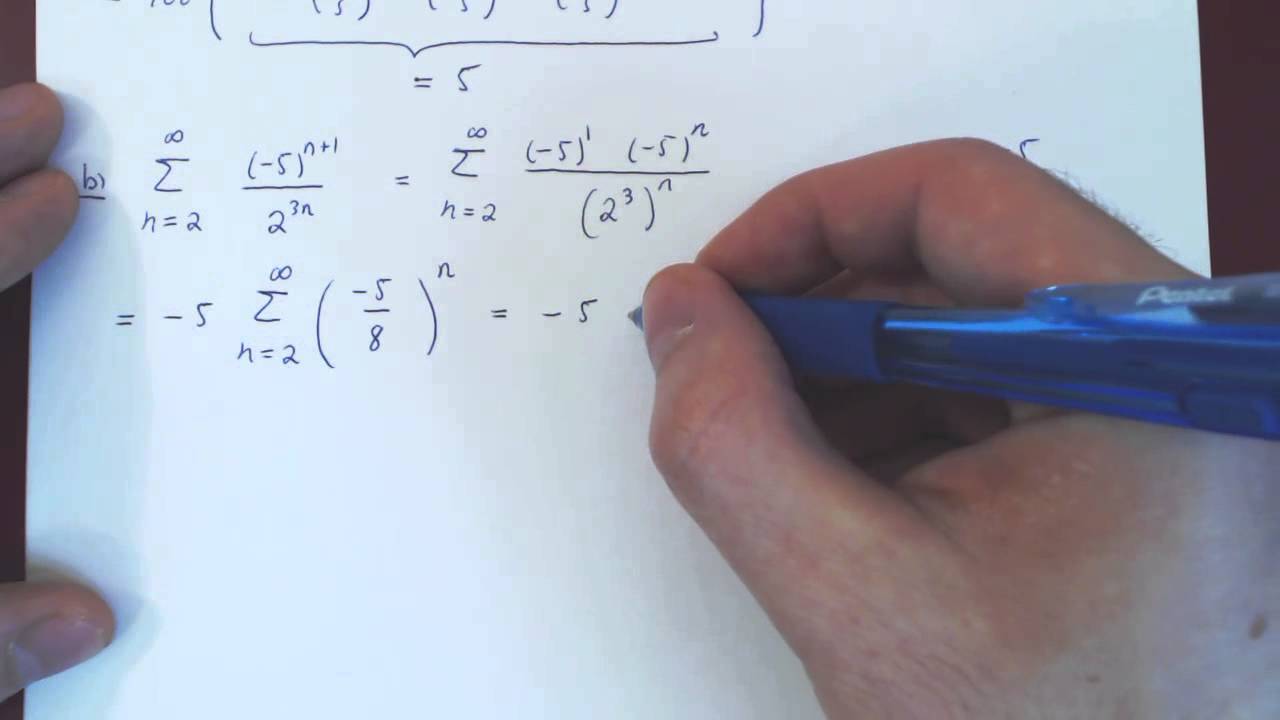 = 5
b) ∑_{n=2}^{∞} (-5)^{n+1} / 2^{3n} = ∑_{n=2}^{∞} (-5)^1 (-5)^n / (2^3)^n
= -5 ∑_{n=2}^{∞} (-5/8)^n = -5
Pentel